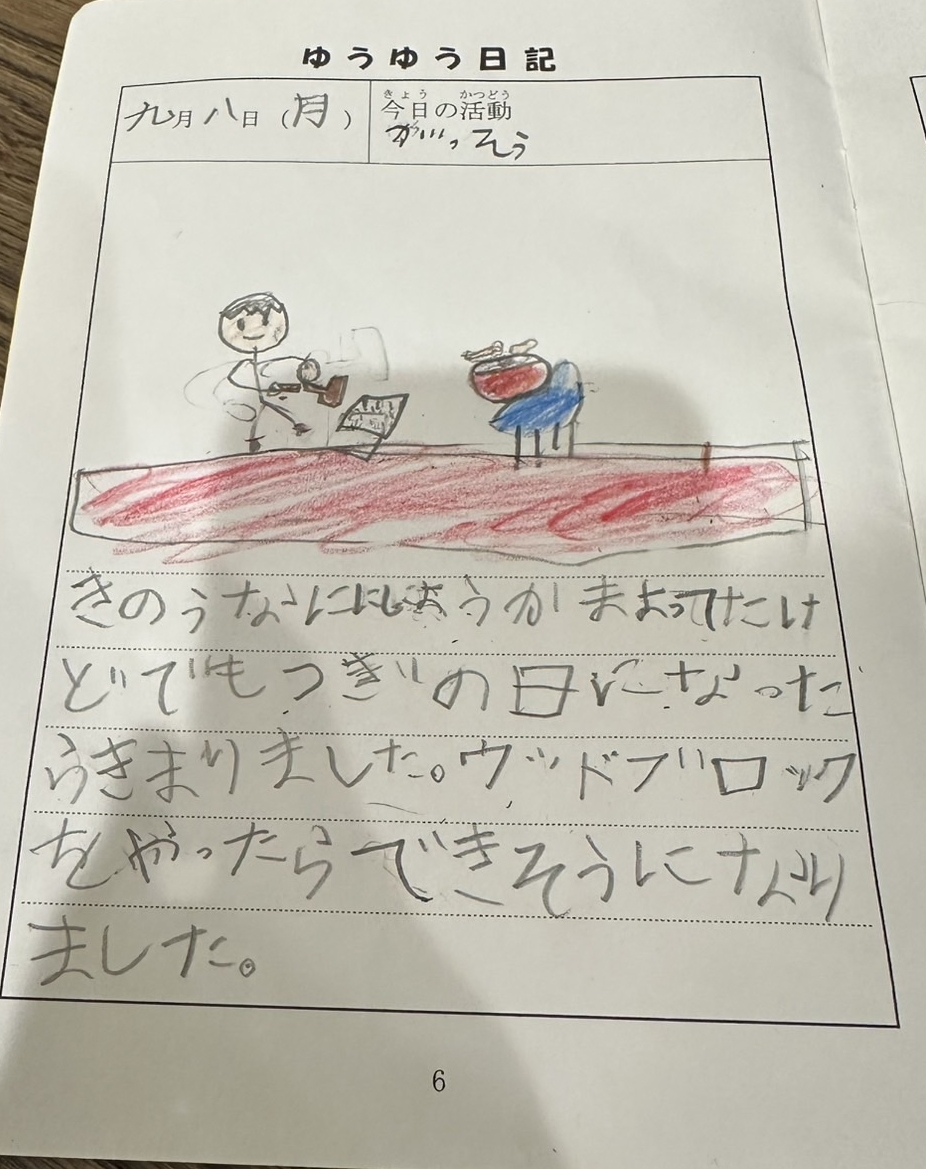 ゆうゆう日記
九月八日(月)
きょう かつどう
今日の活動
がっそう
きのうなににしようかまよってたけ
どでもつぎの日になった
らきまりました。ウッドブロック
をやったらできそうになり
ました。
6